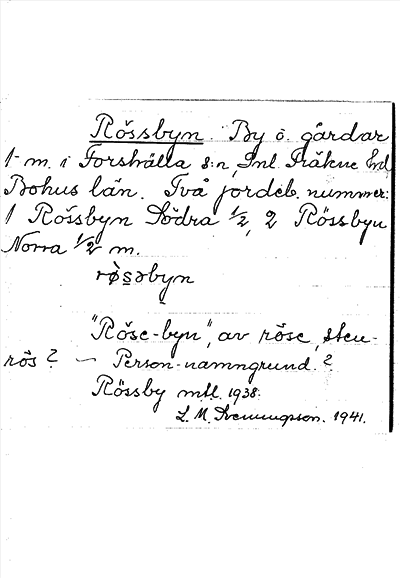 Rössbyn. By o. gårdar
1 m. i Forshälla s:n, Inl. Fräkne hd
Bohus län. Två jordeb. nummer:
1 Rössbyn Södra 1/2, 2 Rössbyn
Norra 1/2 m.
rø̀s̱əbyn
"Röse-byn", av röse, sten-
rös? – Person-namngrund?
Rössby mtl. 1938.
L. M. Svenungsson. 1941.